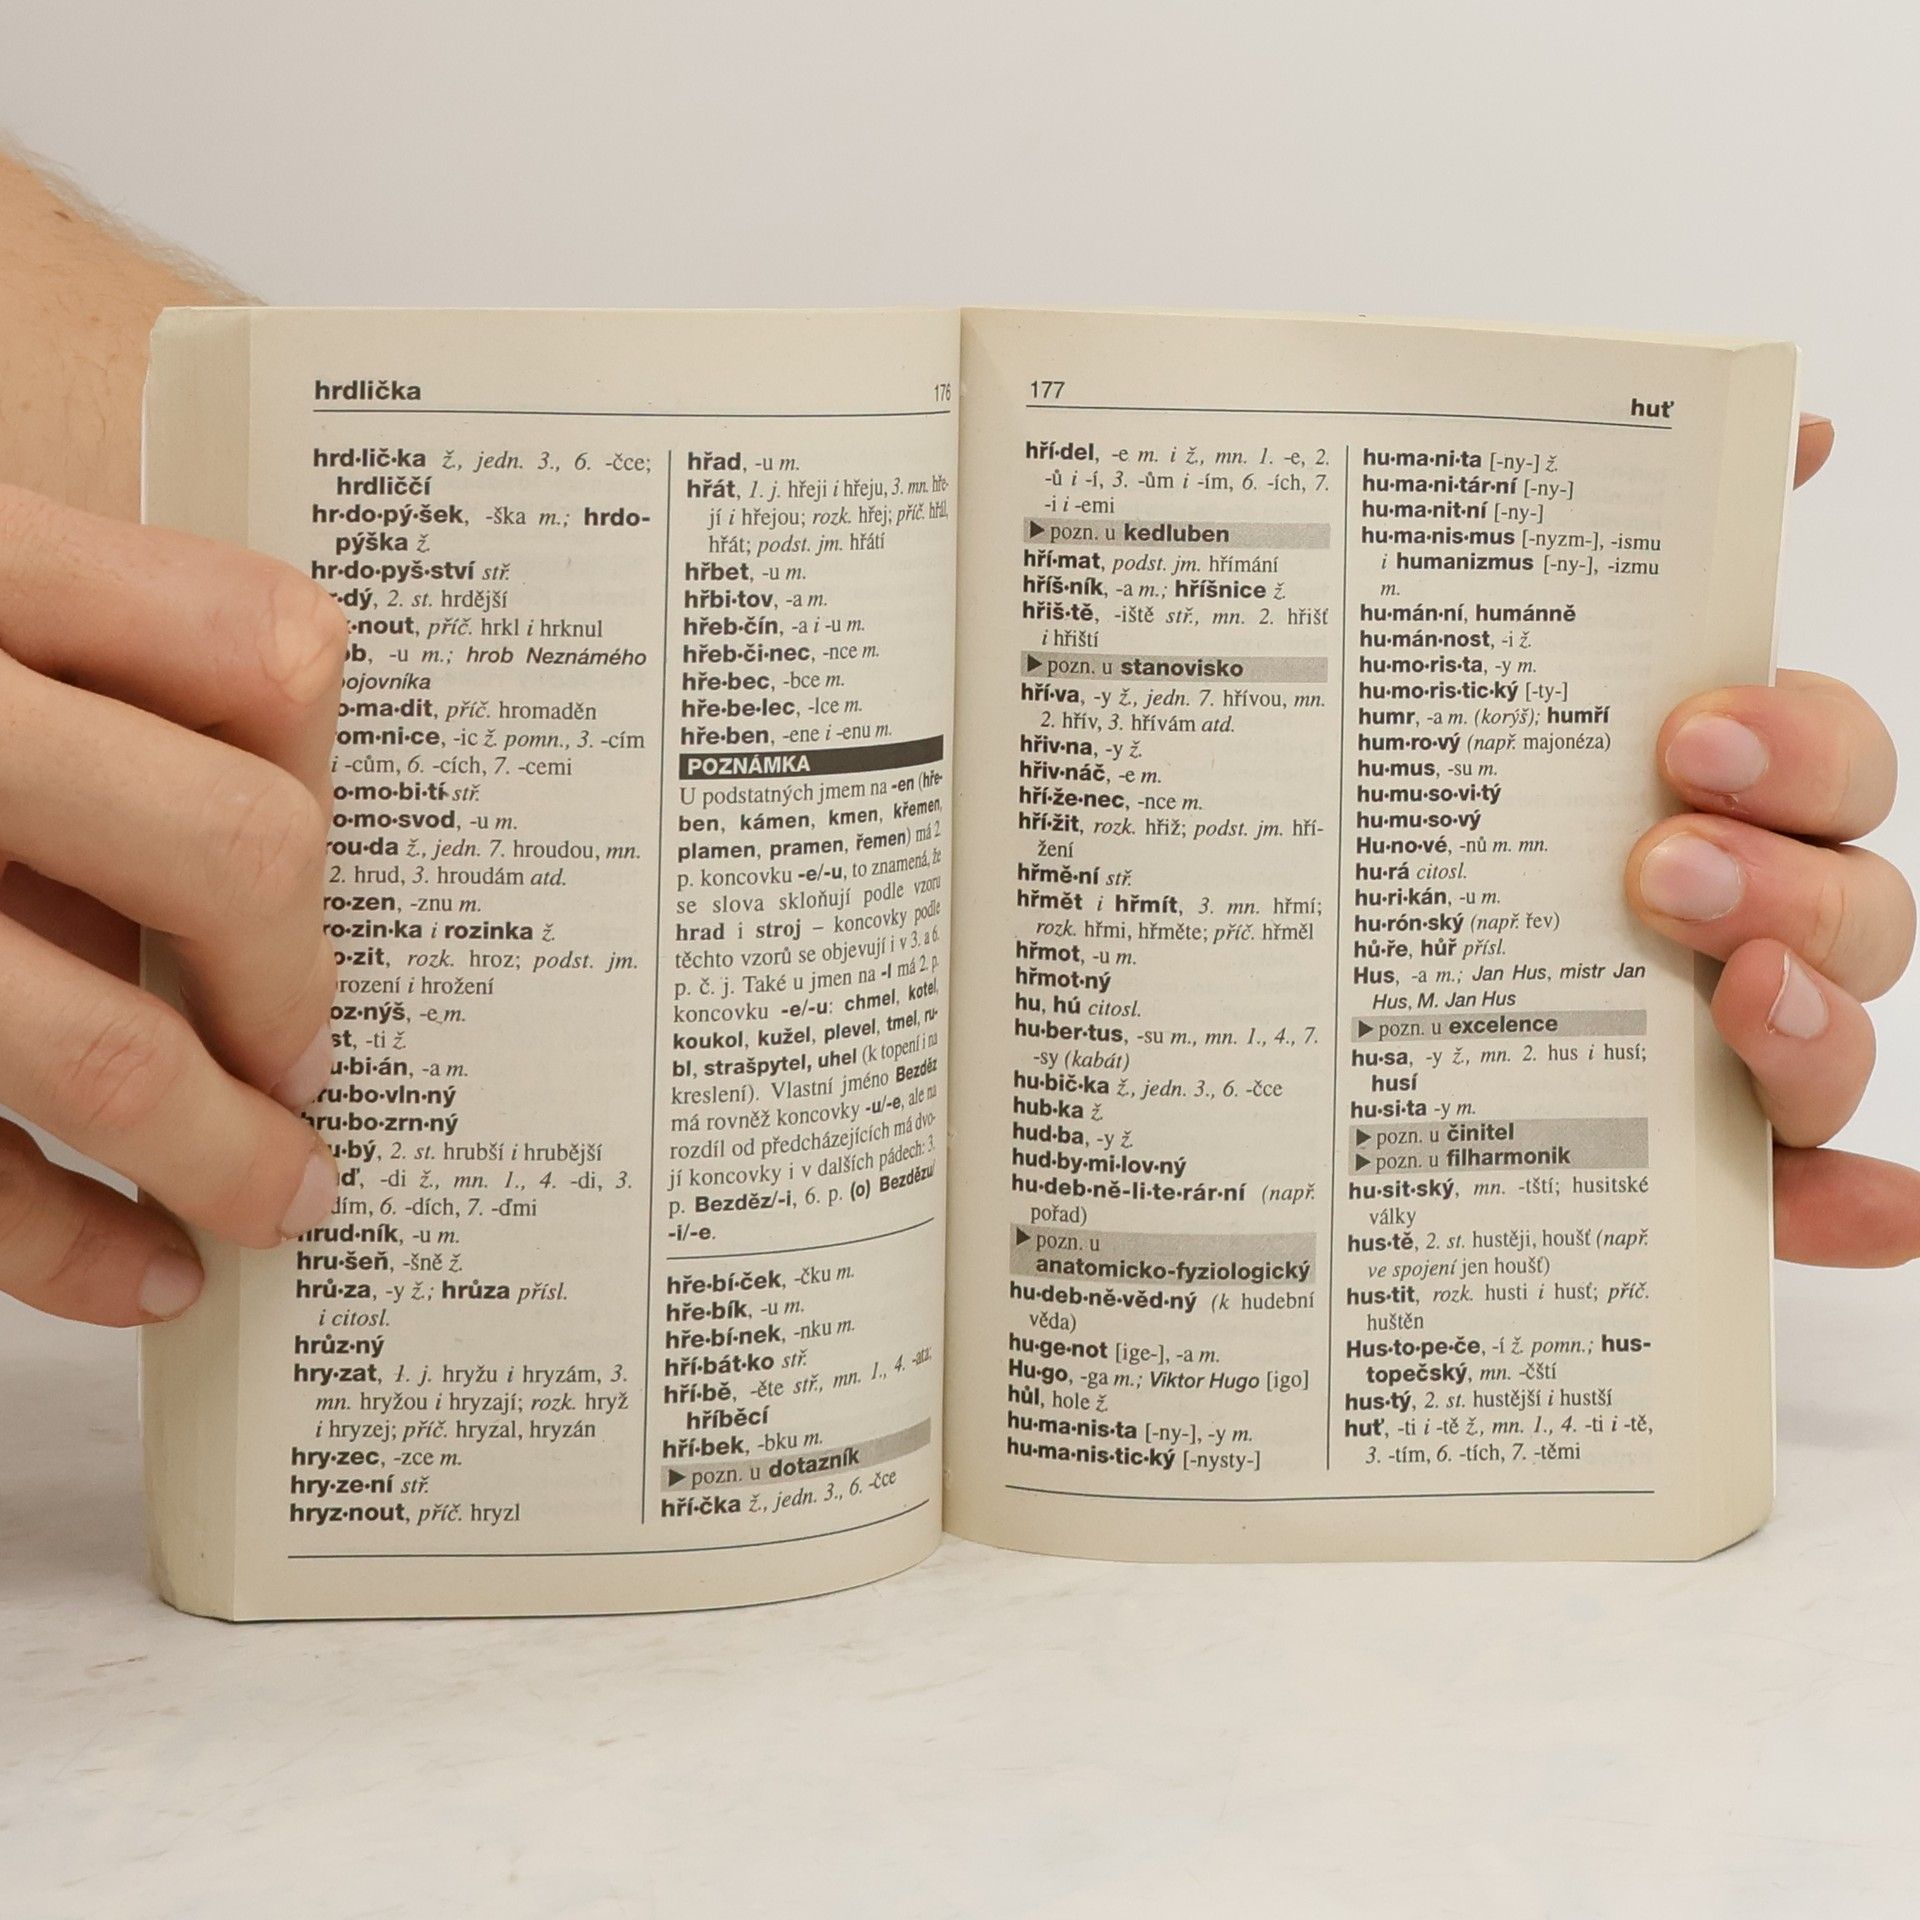 hrdlička
176
hrd·lič·ka ž., jedn. 3., 6. -čce;
hrdliččí
hr·do·pý·šek, -ška m.; hrdo-
pýška ž.
hr·do·pyš·ství stř.
2. st. hrdější
příč. hrkl i hrknul
-u m.; hrob Neznámého
příč. hromaděn
-ic ž. pomn., 3. -cím
i -cům, 6. -cích, 7. -cemi
stř.
-u m.
ž., jedn. 7. hroudou, mn.
2. hrud, 3. hroudám atd.
-znu m.
i rozinka ž.
rozk. hroz; podst. jm.
i hrožení
-e m.
-ti ž.
-a m.
hru·bo·vln·ný
hru·bo·zrn·ný
2. st. hrubší i hrubější
-di ž., mn. 1., 4. -di, 3.
6. -dích, 7. -ďmi
hrud·ník, -u m.
hru·šeň, -šně ž.
hrů·za, -y ž.; hrůza přísl.
i citosl.
hrůz·ný
hry·zat, 1. j. hryžu i hryzám, 3.
mn. hryžou i hryzají; rozk. hryž
i hryzej; příč. hryzal, hryzán
hry·zec, -zce m.
hry·ze·ní stř.
hryz·nout, příč. hryzl
hřad, -u m.
hřát, 1. j. hřeji i hřeju, 3. mn. hře-
jí i hřejou; rozk. hřej; příč. hřál,
hřát; podst. jm. hřátí
hřbet, -u m.
hřbi·tov, -a m.
hřeb·čín, -a i -u m.
hřeb·či·nec, -nce m.
hře·bec, -bce m.
hře·be·lec, -lce m.
hře·ben, -ene i -enu m.
POZNÁMKA
U podstatných jmen na -en (hře-
ben, kámen, kmen, křemen,
plamen, pramen, řemen) má 2.
p. koncovku -e/-u, to znamená, že
se slova skloňují podle vzoru
hrad i stroj – koncovky podle
těchto vzorů se objevují i v 3. a 6.
p. č. j. Také u jmen na -l má 2. p.
koncovku -e/-u: chmel, kotel,
koukol, kužel, plevel, tmel, ru-
bl, strašpytel, uhel (k topení i na
kreslení). Vlastní jméno Bezděz
má rovněž koncovky -u/-e, ale na
rozdíl od předcházejících má dvo-
jí koncovky i v dalších pádech: 3.
p. Bezděz/-i, 6. p. (o) Bezdězu/
-i/-e.
hře·bí·ček, -čku m.
hře·bík, -u m.
hře·bí·nek, -nku m.
hří·bát·ko stř.
hří·bě, -ěte stř., mn. 1., 4. -ata;
hříběcí
hří·bek, -bku m.
▶ pozn. u dotazník
hří·čka ž., jedn. 3., 6. -čce
177
huť
hří·del, -e m. i ž., mn. 1. -e, 2.
-ů i -í, 3. -ům i -ím, 6. -ích, 7.
-i i -emi
▶ pozn. u kedluben
hří·mat, podst. jm. hřímání
hříš·ník, -a m.; hříšnice ž.
hřiš·tě, -iště stř., mn. 2. hřišť
i hřiští
▶ pozn. u stanovisko
hří·va, -y ž., jedn. 7. hřívou, mn.
2. hřív, 3. hřívám atd.
hřiv·na, -y ž.
hřiv·náč, -e m.
hří·že·nec, -nce m.
hří·žit, rozk. hřiž; podst. jm. hří-
žení
hřmě·ní stř.
hřmět i hřmít, 3. mn. hřmí;
rozk. hřmi, hřměte; příč. hřměl
hřmot, -u m.
hřmot·ný
hu, hú citosl.
hu·ber·tus, -su m., mn. 1., 4., 7.
-sy (kabát)
hu·bič·ka ž., jedn. 3., 6. -čce
hub·ka ž.
hud·ba, -y ž.
hud·by·mi·lov·ný
hu·deb·ně-li·te·rár·ní (např.
pořad)
▶ pozn. u
anatomicko-fyziologický
hu·deb·ně·věd·ný (k hudební
věda)
hu·ge·not [ige-], -a m.
Hu·go, -ga m.; Viktor Hugo [igo]
hůl, hole ž.
hu·ma·nis·ta [-ny-], -y m.
hu·ma·nis·tic·ký [-nysty-]
hu·ma·ni·ta [-ny-] ž.
hu·ma·ni·tár·ní [-ny-]
hu·ma·nit·ní [-ny-]
hu·ma·nis·mus [-nyzm-], -ismu
i humanizmus [-ny-], -izmu
m.
hu·mán·ní, humánně
hu·mán·nost, -i ž.
hu·mo·ris·ta, -y m.
hu·mo·ris·tic·ký [-ty-]
humr, -a m. (korýš); humří
hum·ro·vý (např. majonéza)
hu·mus, -su m.
hu·mu·so·vi·tý
hu·mu·so·vý
Hu·no·vé, -nů m. mn.
hu·rá citosl.
hu·ri·kán, -u m.
hu·rón·ský (např. řev)
hů·ře, hůř přísl.
Hus, -a m.; Jan Hus, mistr Jan
Hus, M. Jan Hus
▶ pozn. u excelence
hu·sa, -y ž., mn. 2. hus i husí;
husí
hu·si·ta -y m.
▶ pozn. u činitel
▶ pozn. u filharmonik
hu·sit·ský, mn. -tští; husitské
války
hus·tě, 2. st. hustěji, houšť (např.
ve spojení jen houšť)
hus·tit, rozk. husti i husť; příč.
huštěn
Hus·to·pe·če, -í ž. pomn.; hus-
topečský, mn. -čští
hus·tý, 2. st. hustější i hustší
huť, -ti i -tě ž., mn. 1., 4. -ti i -tě,
3. -tím, 6. -tích, 7. -těmi